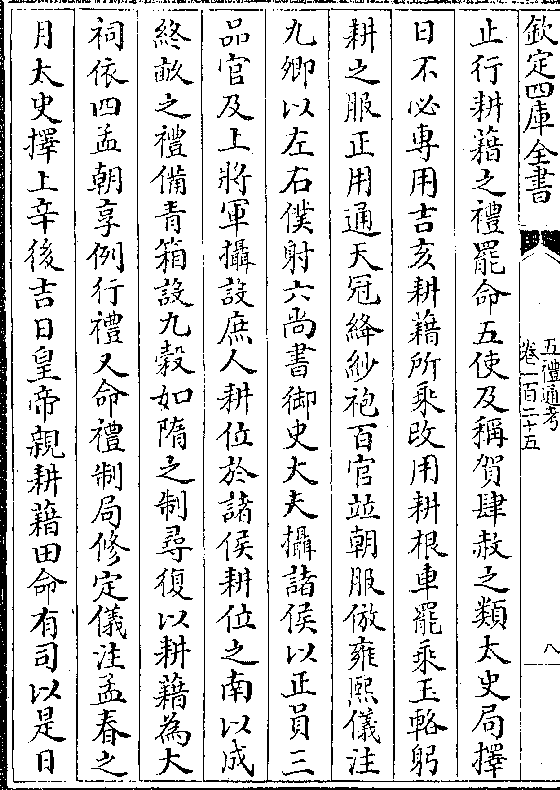 欽定四庫全書
五禮通考
卷一百二十五
八
止行耕藉之禮罷命五使及稱賀肆赦之類太史局擇
日不必專用吉亥耕藉所乘改用耕根車罷乘玉輅躬
耕之服正用通天冠絳紗袍百官竝朝服倣雍熙儀注
九卿以左右僕射六尚書御史大夫攝諸侯以正員三
品官及上將軍攝設庶人耕位於諸侯耕位之南以成
終畝之禮備青箱設九穀如隋之制尋復以耕藉為大
祠依四孟朝享例行禮又命禮制局修定儀注孟春之
月太史擇上辛後吉日皇帝親耕藉田命有司以是日